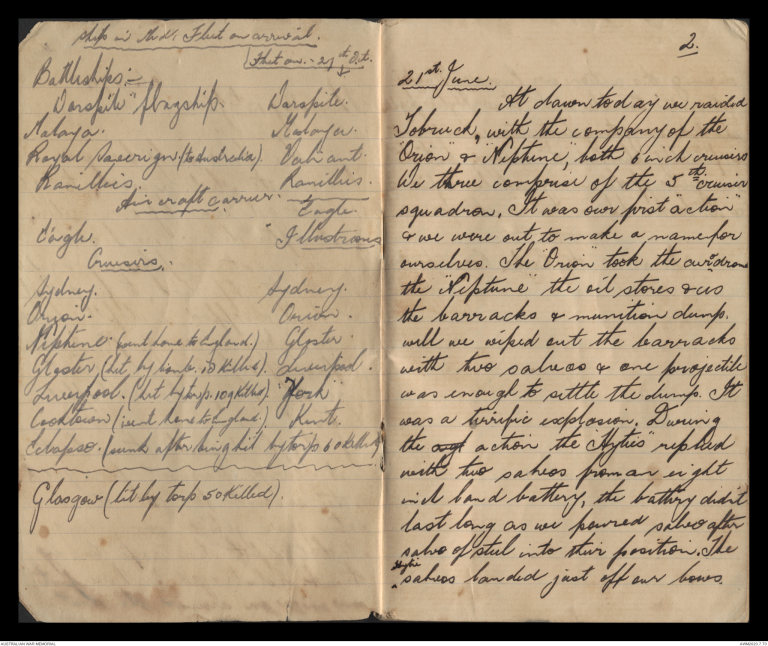 Ships in Med: Fleet on arrival.
Fleet on - 21st Oct.
Battleships:-
"Warspite" flagship. Warspite.
Malaya. Malaya.
Royal Sovereign. (to Australia). Valiant.
Ramillies. Ramillies.
Aircraft carrier.
Eagle.
Eagle. "Illustrious
Cruisers.
Sydney. Sydney.
Orion. Orion.
Neptune. (went home to England.) Gloster.
Gloster (hit by bomb. 18 Killed). Liverpool.
Liverpool. (hit by torp. 109 Killed.) "York"
(went home to England.) Kent.
(sunk after being hit by torp 60 Killed)
Glasgow (hit by torp 50 Killed).
2.
21st June.
At dawn today we raided
Tobruch, with the company of the
"Orion" & "Neptune", both 6 inch cruisers
We three comprise of the 5th cruiser
squadron. It was our first "action"
& we were out to make a name for
ourselves. The "Orion" took the air"drome
the "Neptune" the oil stores & us
the barracks & munition dump.
well we wiped out the barracks
with two salvoes & one projectile
was enough to settle the dump. It
was a terrific explosion. During
the action the "Ityties" replied
with two salvoes from an eight
inch land battery, the battery didn't
last long as we poured salvo after
salvo of steel into their position. The
salvoes landed just off our bows.
AUSTRALIAN WAR MEMORIAL